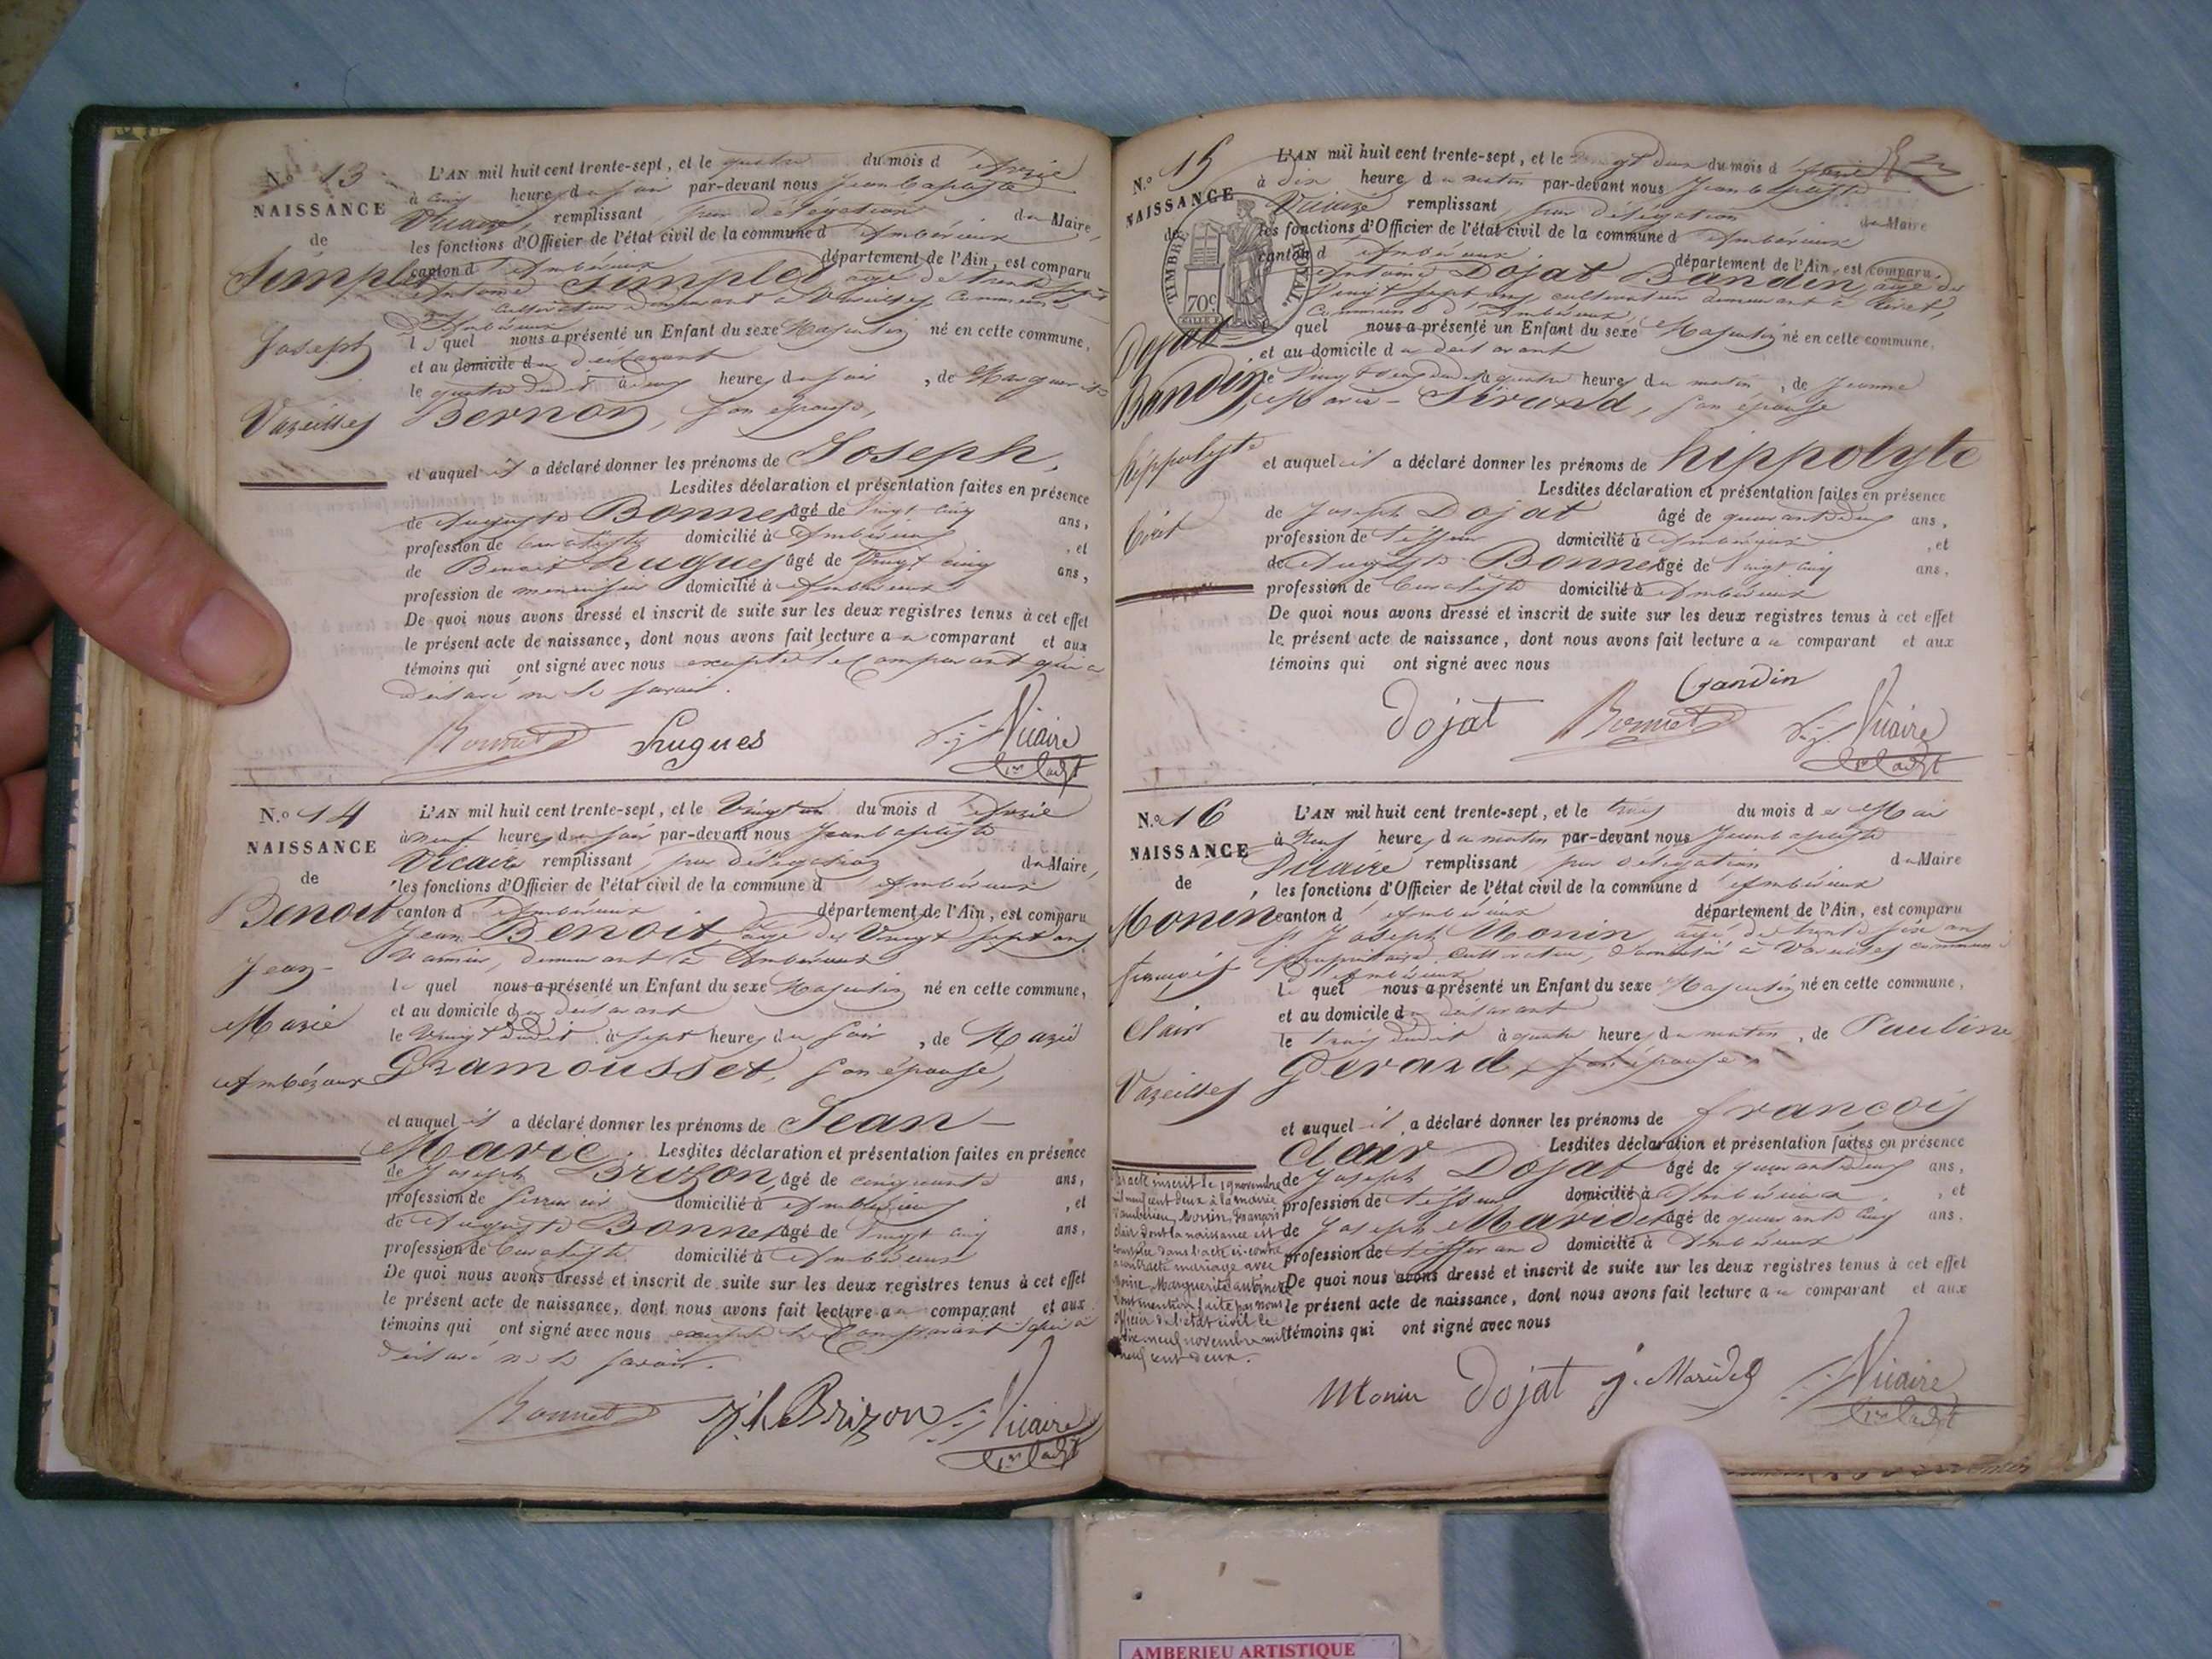 N.º 13
NAISSANCE
de
Simplet
Joseph
Vareilles
L'AN mil huit cent trente-sept, et le quatre du mois d'Avril
à cinq heures du soir par-devant nous Jean Baptiste
Vicaire, remplissant par délégation du Maire,
les fonctions d'Officier de l'état civil de la commune d'Ambérieux
canton d'Ambérieux département de l'Ain, est comparu
Antoine Simplet âgé de trente sept
ans cultivateur demeurant à Vareilles commune
d'Ambérieux
lequel nous a présenté un Enfant du sexe Masculin né en cette commune,
et au domicile du déclarant
le quatre dudit à heures du soir, de Marguerite
Bernon, son épouse,
et auquel il a déclaré donner les prénoms de Joseph,
Lesdites déclaration et présentation faites en présence
de Auguste Bonnet âgé de vingt cinq ans,
profession de buraliste domicilié à Ambérieux, et
de Benoit hugues âgé de vingt cinq ans,
profession de menuisier domicilié à Ambérieux
De quoi nous avons dressé et inscrit de suite sur les deux registres tenus à cet effet
le présent acte de naissance, dont nous avons fait lecture au comparant et aux
témoins qui ont signé avec nous excepté le Comparant qui a
déclaré ne le savoir.
Bonnet Hugues Vicaire
N.º 14
NAISSANCE
de
Benoit
Jean-
Marie
Ambérieux
L'AN mil huit cent trente-sept, et le vingt un du mois d'Avril
à neuf heures du soir par-devant nous Jean baptiste
Vicaire remplissant par délégation du Maire,
les fonctions d'Officier de l'état civil de la commune d'Ambérieux
canton d'Ambérieux département de l'Ain, est comparu
Jean Benoit âgé de vingt sept ans
demeurant à Ambérieux
lequel nous a présenté un Enfant du sexe Masculin né en cette commune,
et au domicile du déclarant
le vingt dudit à sept heures du soir, de Marie
Gramousset, son épouse,
et auquel il a déclaré donner les prénoms de Jean-
Marie. Lesdites déclaration et présentation faites en présence
de Joseph Brizon, âgé de cinquante ans,
profession de serrurier domicilié à Ambérieux, et
de Auguste Bonnet âgé de vingt cinq ans,
profession de buraliste domicilié à Ambérieux
De quoi nous avons dressé et inscrit de suite sur les deux registres tenus à cet effet
le présent acte de naissance, dont nous avons fait lecture au comparant et aux
témoins qui ont signé avec nous excepté le Comparant qui a
déclaré ne le savoir.
Bonnet Brizon Vicaire
N.º 15
NAISSANCE
de
TIMBRE ROYAL.
70c
Dojat-
Bandin,
hippolyte
L'AN mil huit cent trente-sept, et le vingt deux du mois d'Avril
à dix heures du matin par-devant nous Jean baptiste
Vicaire remplissant par délégation du Maire
les fonctions d'Officier de l'état civil de la commune d'Ambérieux
canton d'Ambérieux département de l'Ain, est comparu
Antoine Dojat Bandin, âgé de
vingt sept ans cultivateur demeurant à
commune d'Ambérieux
lequel nous a présenté un Enfant du sexe Masculin né en cette commune,
et au domicile du déclarant
le vingt deux dudit à quatre heures du matin, de Jeanne
Marie-Sirand, son épouse
et auquel il a déclaré donner les prénoms de hippolyte
Lesdites déclaration et présentation faites en présence
de Joseph Dojat âgé de quarante deux ans,
profession de tisseur domicilié à Ambérieux, et
de Auguste Bonnet âgé de vingt cinq ans,
profession de buraliste domicilié à Ambérieux
De quoi nous avons dressé et inscrit de suite sur les deux registres tenus à cet effet
le présent acte de naissance, dont nous avons fait lecture au comparant et aux
témoins qui ont signé avec nous
dojat Bonnet Vicaire
N.º 16
NAISSANCE
de
Monin
françois
Clair
Vareilles
L'AN mil huit cent trente-sept, et le trois du mois de Mai
à neuf heures du matin par-devant nous Jean baptiste
Vicaire remplissant par délégation du Maire
les fonctions d'Officier de l'état civil de la commune d'Ambérieux
canton d'Ambérieux département de l'Ain, est comparu
Joseph Monin, âgé de trente six ans
propriétaire cultivateur, domicilié à Vareilles commune
d'Ambérieux
lequel nous a présenté un Enfant du sexe Masculin né en cette commune,
et au domicile du déclarant
le trois dudit à quatre heures du matin, de Pauline
Gerard, son épouse
et auquel il a déclaré donner les prénoms de françois
Clair Lesdites déclaration et présentation faites en présence
de Joseph Dojat âgé de quarante deux ans,
profession de tisseur domicilié à Ambérieux, et
de Joseph Maridet âgé de quarante cinq ans,
profession de tisserand domicilié à Ambérieux
De quoi nous avons dressé et inscrit de suite sur les deux registres tenus à cet effet
le présent acte de naissance, dont nous avons fait lecture au comparant et aux
témoins qui ont signé avec nous
Par acte inscrit le 19 novembre
mil neuf cent deux à la mairie
d'ambérieu, Monin, François
Clair dont la naissance est
constatée dans l'acte ci-contre
a contracté mariage avec
Marguerite antoinette
Dont mention faite par nous
officier de l'état civil le
dix neuf novembre mil
neuf cent deux.
Monin dojat j. Maridet Vicaire
AMBERIEU ARTISTIQUE